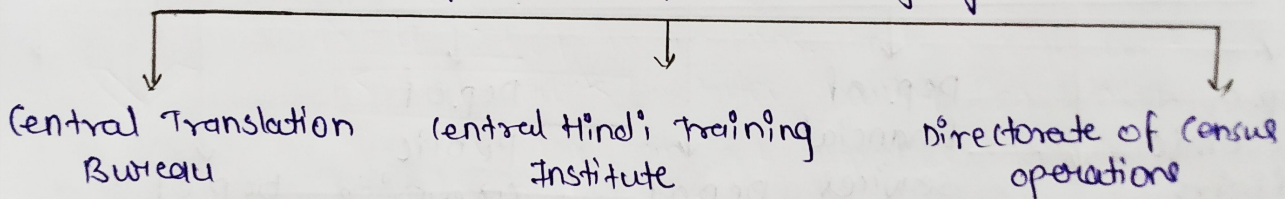 Central Translation
Bureau
Central Hindi Training
Institute
Directorate of Census
operations